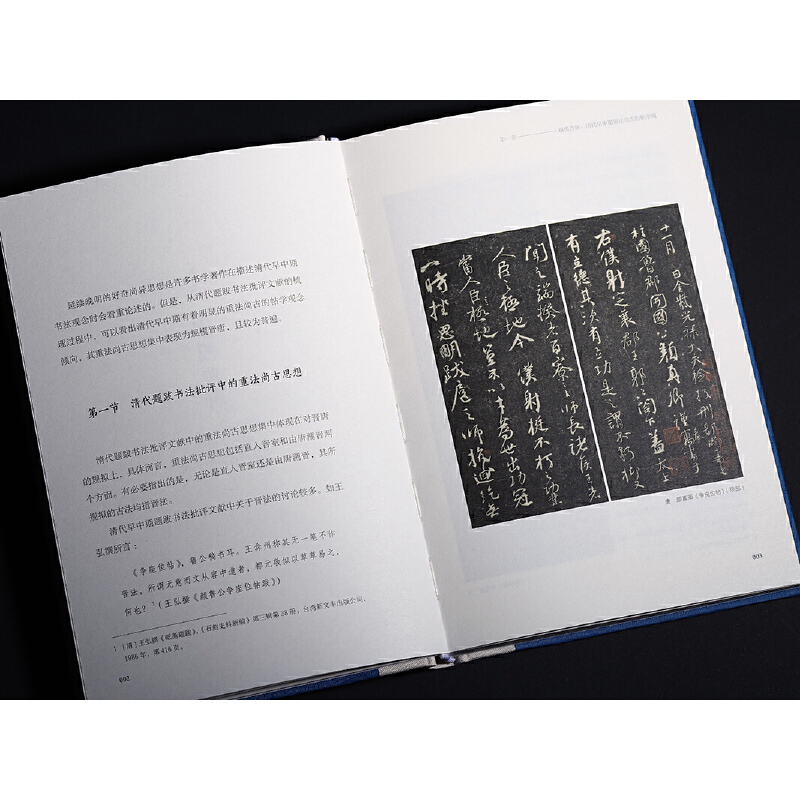 延续晚明的好奇尚异思想是许多书学著作在描述清代早中期
书法观念时会着重论述的。但是，从清代题跋书法批评文献的梳
理过程中，可以看出清代早中期有着明显的重法尚古的哲学观念
倾向，其重法尚古思想集中表现为规模晋唐，且较为普遍。
第一节 清代题跋书法批评中的重法尚古思想
清代题跋书法批评文献中的重法尚古思想集中体现在对晋唐
的规拟上。具体而言，重法尚古思想包括直入晋室和由唐溯晋两
个方面。有必要指出的是，无论是直入晋室还是由唐溯晋，其所
规拟的古法均指晋法。
清代早中期题跋书法批评文献中关于晋法的讨论较多。如王
弘撰所言：
《争座位帖》，鲁公稿书耳。王弇州称其无一笔不非
晋法，所谓无意而文从容中道者，都元敬似以草草易之，
何也？¹（王弘撰《颜鲁公争座位帖跋》）
1 〔清〕王弘撰《砥斋题跋》，《石刻史料新编》第三辑第38册，台湾新文丰出版公司，
1986年，第416页。
002
十一月 日金紫光禄大夫检校刑部尚书
柱国鲁郡开国公颜真卿谨
右仆射定襄郡王郭公阁下盖太上
有立德其次有立功是之谓不朽抑又
闻之端揆者百寮之师长诸侯王者
人臣之极地今仆射挺不朽之功业
当人臣极地岂不以才为世出功冠
一时挫思明跋扈之师抗回纥无
唐 颜真卿《争座位帖》（局部）
003